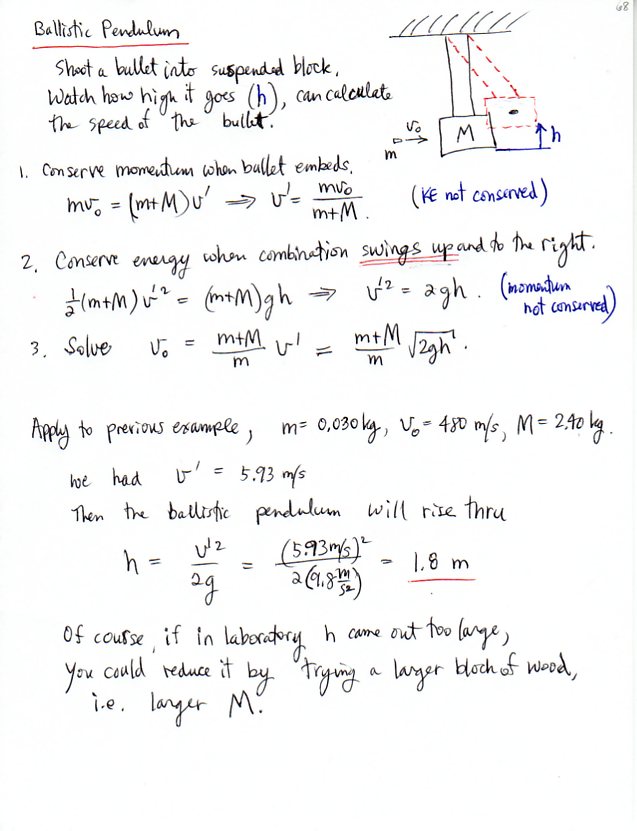 68
Ballistic Pendulum
Shoot a bullet into suspended block.
Watch how high it goes (h), can calculate
the speed of the bullet.
v₀
m
M
h
1. Conserve momentum when bullet embeds.
mv₀ = (m+M)v' ⇒ v' = mv₀/(m+M). (KE not conserved)
2. Conserve energy when combination swings up and to the right.
½(m+M)v'² = (m+M)gh ⇒ v'² = 2gh. (momentum not conserved)
3. Solve v₀ = (m+M)/m v' = (m+M)/m √2gh.
Apply to previous example, m = 0.030 kg, v₀ = 480 m/s, M = 2.40 kg.
we had v' = 5.93 m/s
Then the ballistic pendulum will rise thru
h = v'²/2g = (5.93 m/s)²/2(9.8 m/s²) = 1.8 m
Of course, if in laboratory h came out too large,
you could reduce it by trying a larger block of wood,
i.e. larger M.